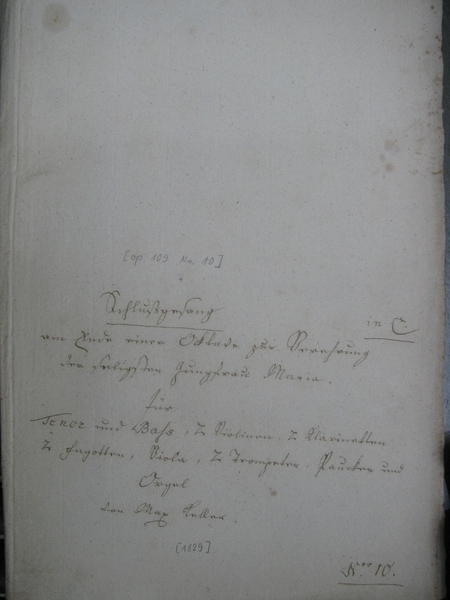 [op 109 No. 10]
Schlußgesang
in C.
am Ende einer Oktave zur Verehrung
der seligsten Jungfrau Maria.
für
Tenor und Bass, 2 Violinen, 2 Klarinetten
2 Fagotten, Viola, 2 Trompeten. Paucken und
Orgel
von Max Keller.
[1829]
Nro 10.